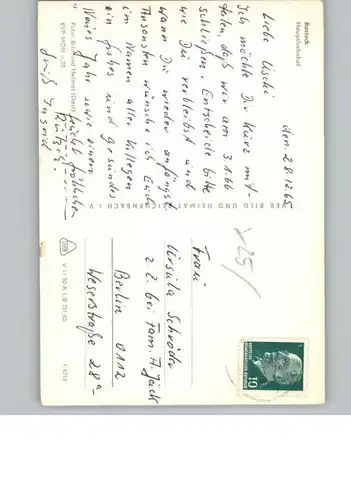 Rostock
Hauptbahnhof
den 28.12.65
Liebe Uschi
Ich möchte Dir kurz mit-
teilen, daß wir am 3.1.66
schließen. Entscheide bitte
wie Du verbleibst und
wann Du wieder anfängst.
Ansonsten wünsche ich Euch
im Namen aller Kollegen
ein frohes und gesundes
Neues Jahr sowie einen
feucht fröhlichen
Rutsch
Gruß Ingrid
Foto: Bild und Heimat
EVP MDN -,25
VEB BILD UND HEIMAT REICHENBACH I. V.
Frau
Ursula Schröder
z. Z. bei Fam. A. Jäck
Berlin 0112
Weserstraße 28a
V 11 50 A 1/B 751/65
10